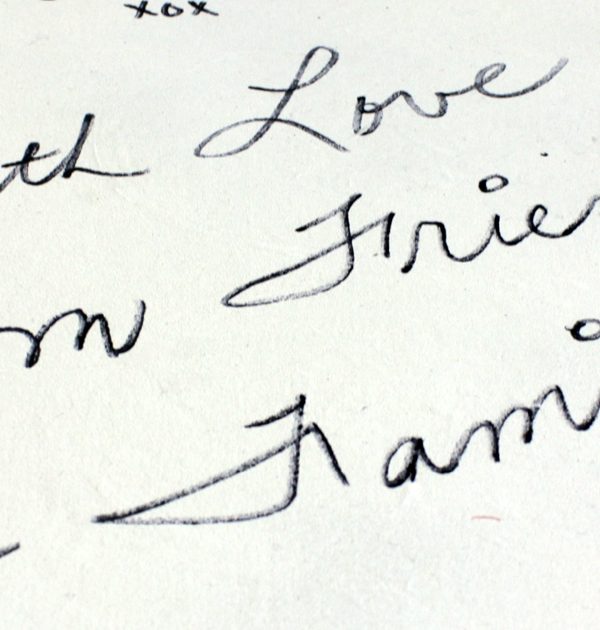 xox
th Love
m Frie
Fami